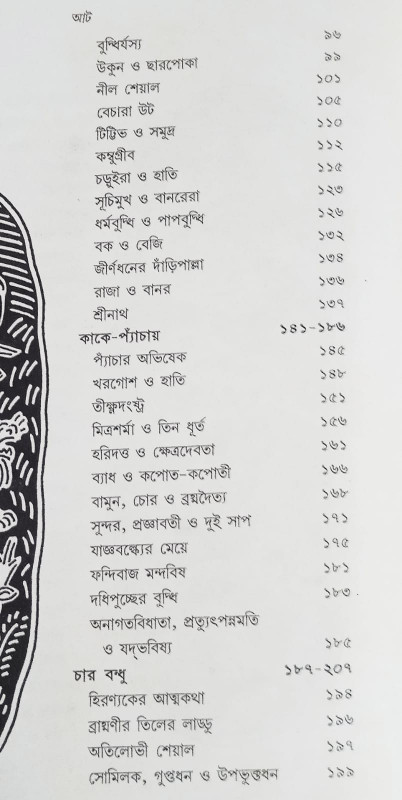 আট
বুদ্ধির্যস্য ৯৬
উকুন ও ছারপোকা ৯৯
নীল শেয়াল ১০১
বেচারা উট ১০৫
টিট্টিভ ও সমুদ্র ১১০
কম্বুগ্রীব ১১২
চড়ুইরা ও হাতি ১১৫
সূচিমুখ ও বানরেরা ১২৩
ধর্মবুদ্ধি ও পাপবুদ্ধি ১২৬
বক ও বেজি ১৩২
জীর্ণধনের দাঁড়িপাল্লা ১৩৪
রাজা ও বানর ১৩৬
শ্রীনাথ ১৩৭
কাকে-প্যাঁচায় ১৪১-১৮৬
প্যাঁচার অভিষেক ১৪৫
খরগোশ ও হাতি ১৪৮
তীক্ষ্ণদংষ্ট্র ১৫১
মিত্রশর্মা ও তিন ধূর্ত ১৫৬
হরিদত্ত ও ক্ষেত্রদেবতা ১৬১
ব্যাধ ও কপোত-কপোতী ১৬৬
বামুন, চোর ও ব্রহ্মদৈত্য ১৬৮
সুন্দর, প্রজ্ঞাবতী ও দুই সাপ ১৭১
যাজ্ঞবল্ক্যের মেয়ে ১৭৫
ফন্দিবাজ মন্দবিষ ১৮১
দধিপুচ্ছের বুদ্ধি ১৮৩
অনাগতবিধাতা, প্রত্যুৎপন্নমতি
ও যদ্ভবিষ্য ১৮৫
চার বন্ধু ১৮৭-২০৭
হিরণ্যকের আত্মকথা ১৯৪
ব্রাহ্মণীর তিলের লাড্ডু ১৯৬
অতিলোভী শেয়াল ১৯৭
সোমিলক, গুপ্তধন ও উপভুক্তধন ১৯৯